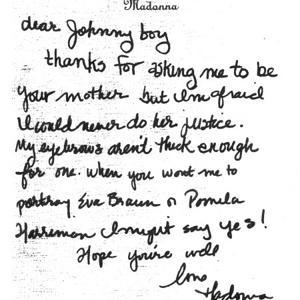 Madonna
dear Johnny boy
thanks for asking me to be
your mother but I'm afraid
I could never do her justice.
My eyebrows aren't thick enough
for one. when you want me to
portray Eva Braun or Pamela
Harriman I might say yes!
Hope you're well
love
Madonna